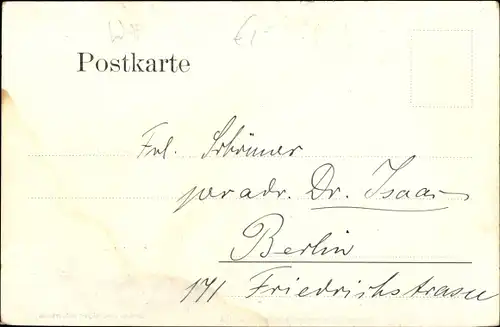 Postkarte
Frl. Schriner
per adr. Dr. Isaac
Berlin
171 Friedrichstrasse